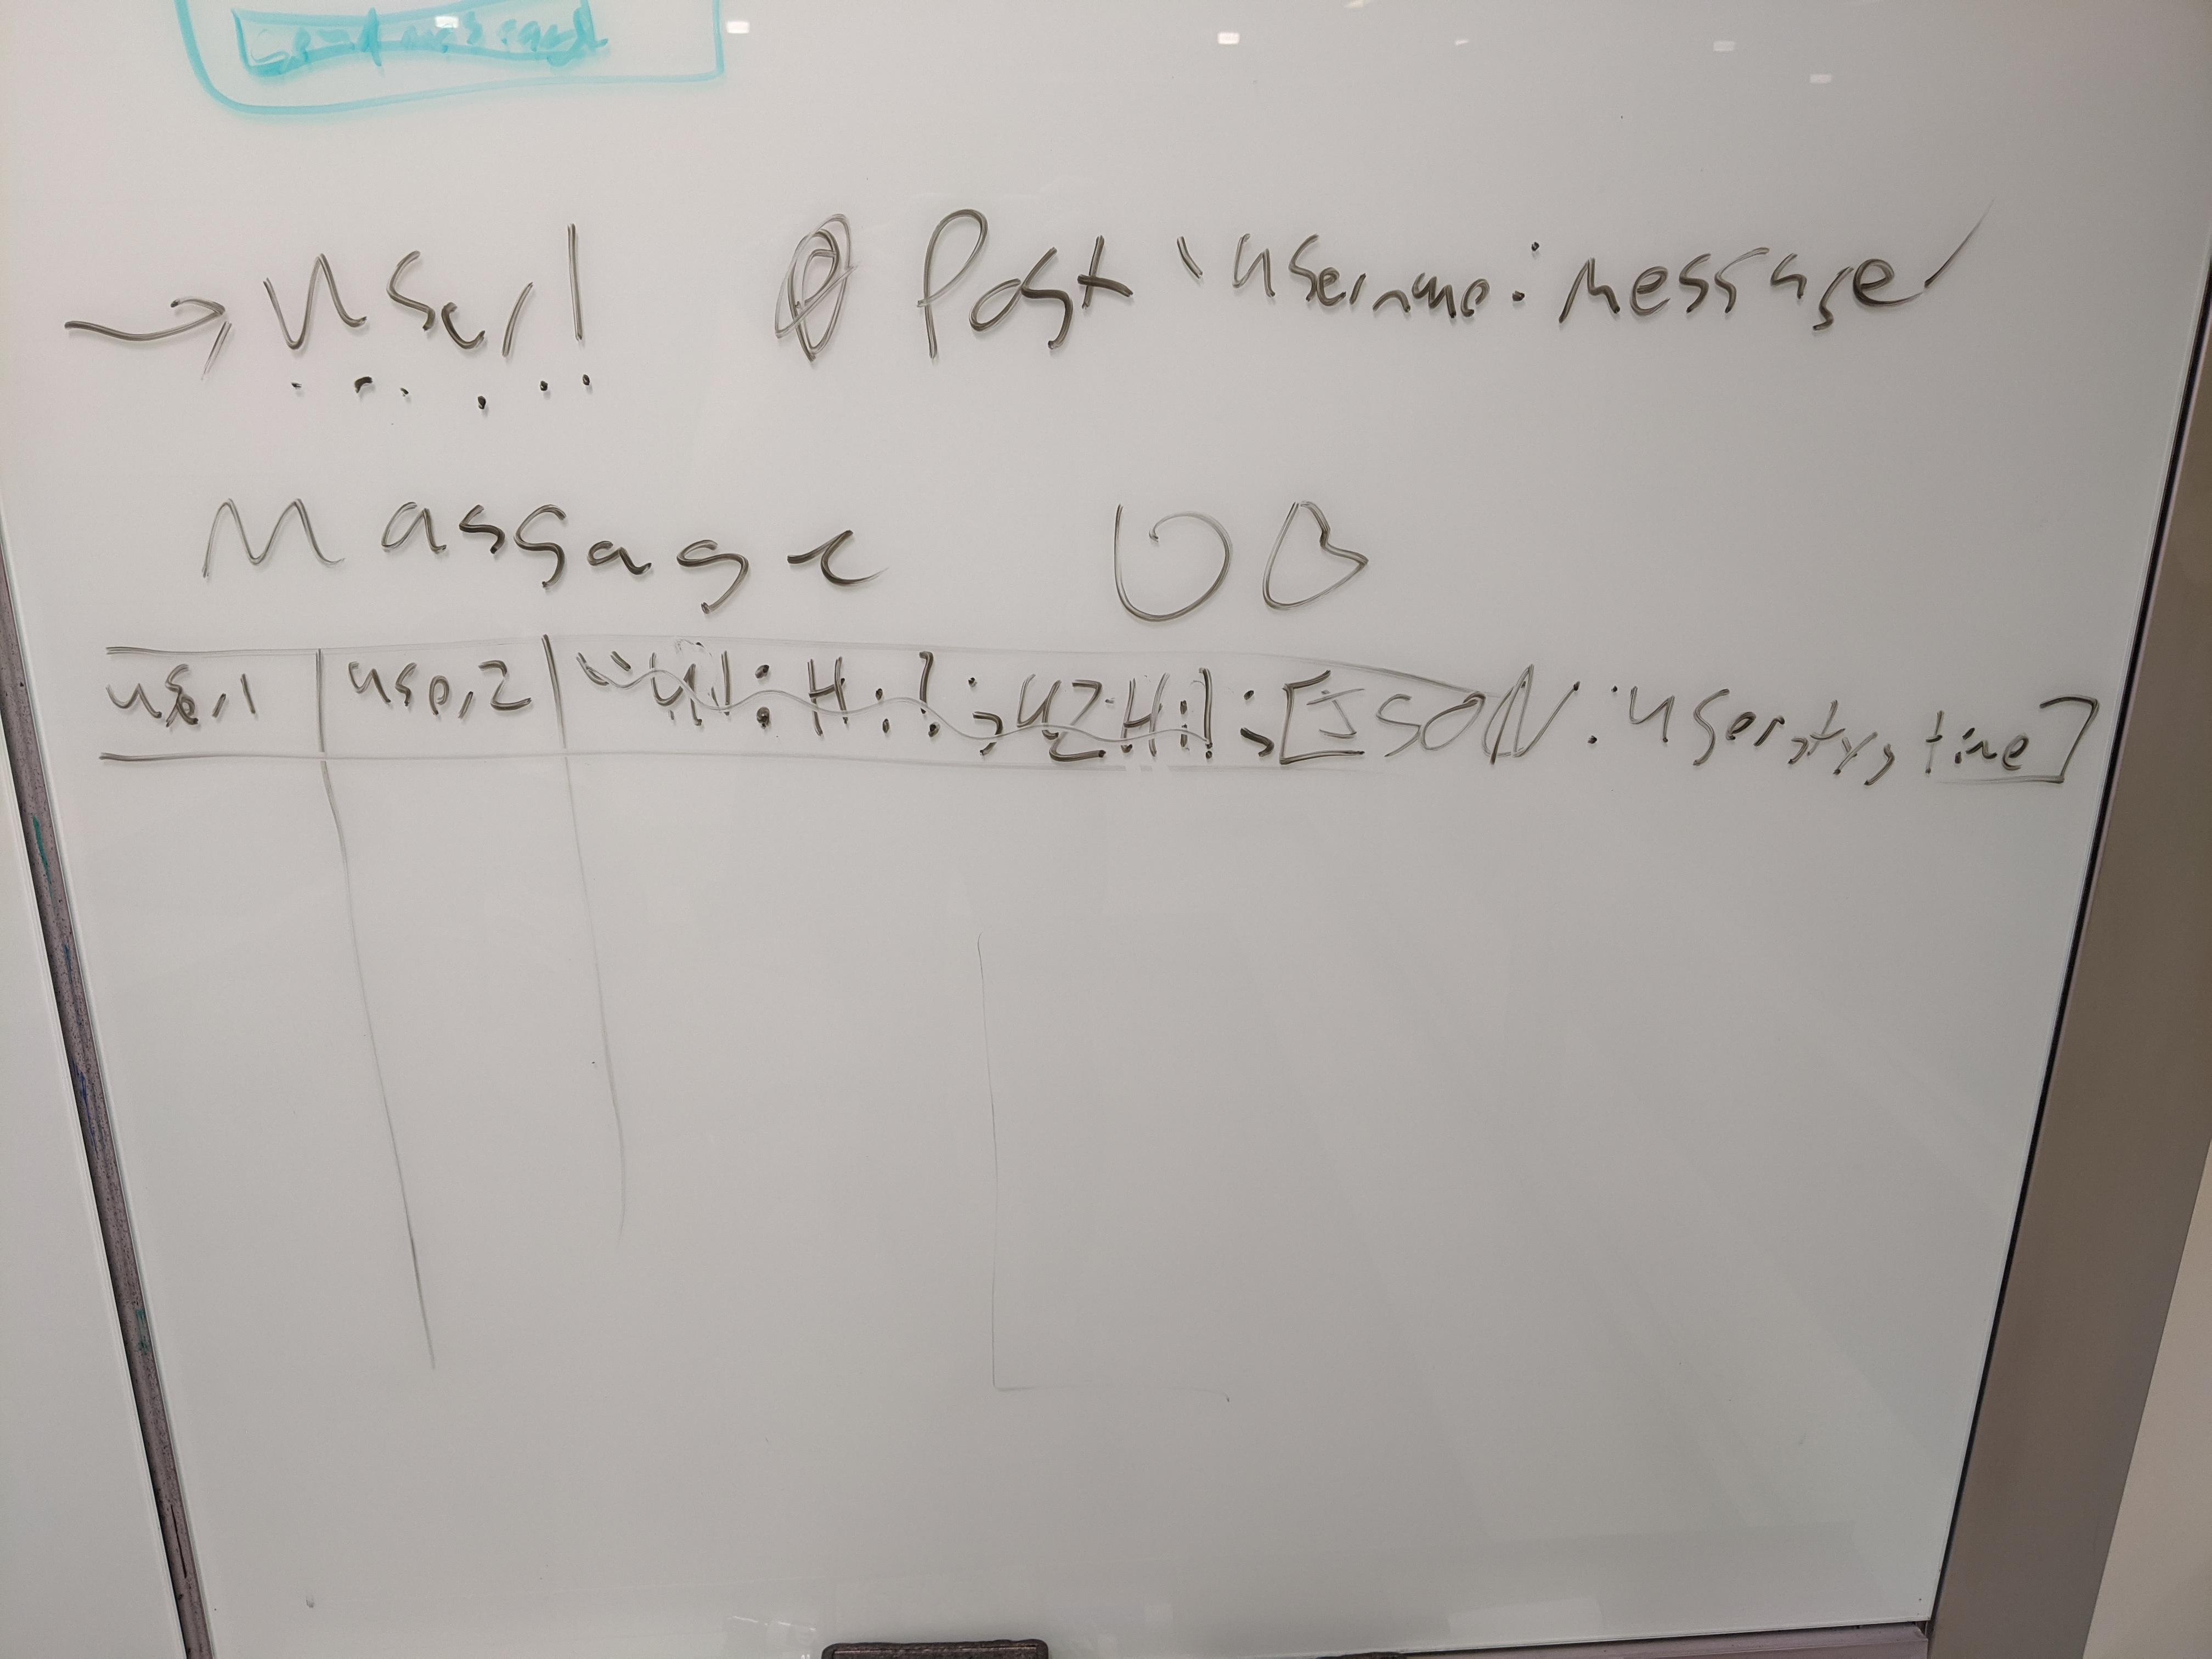 Send message
→ User1 Post 'username: message'
Massage DB
user1 | user2 | "U1: Hi!; U2: Hi!; [JSON: user, txt, time]